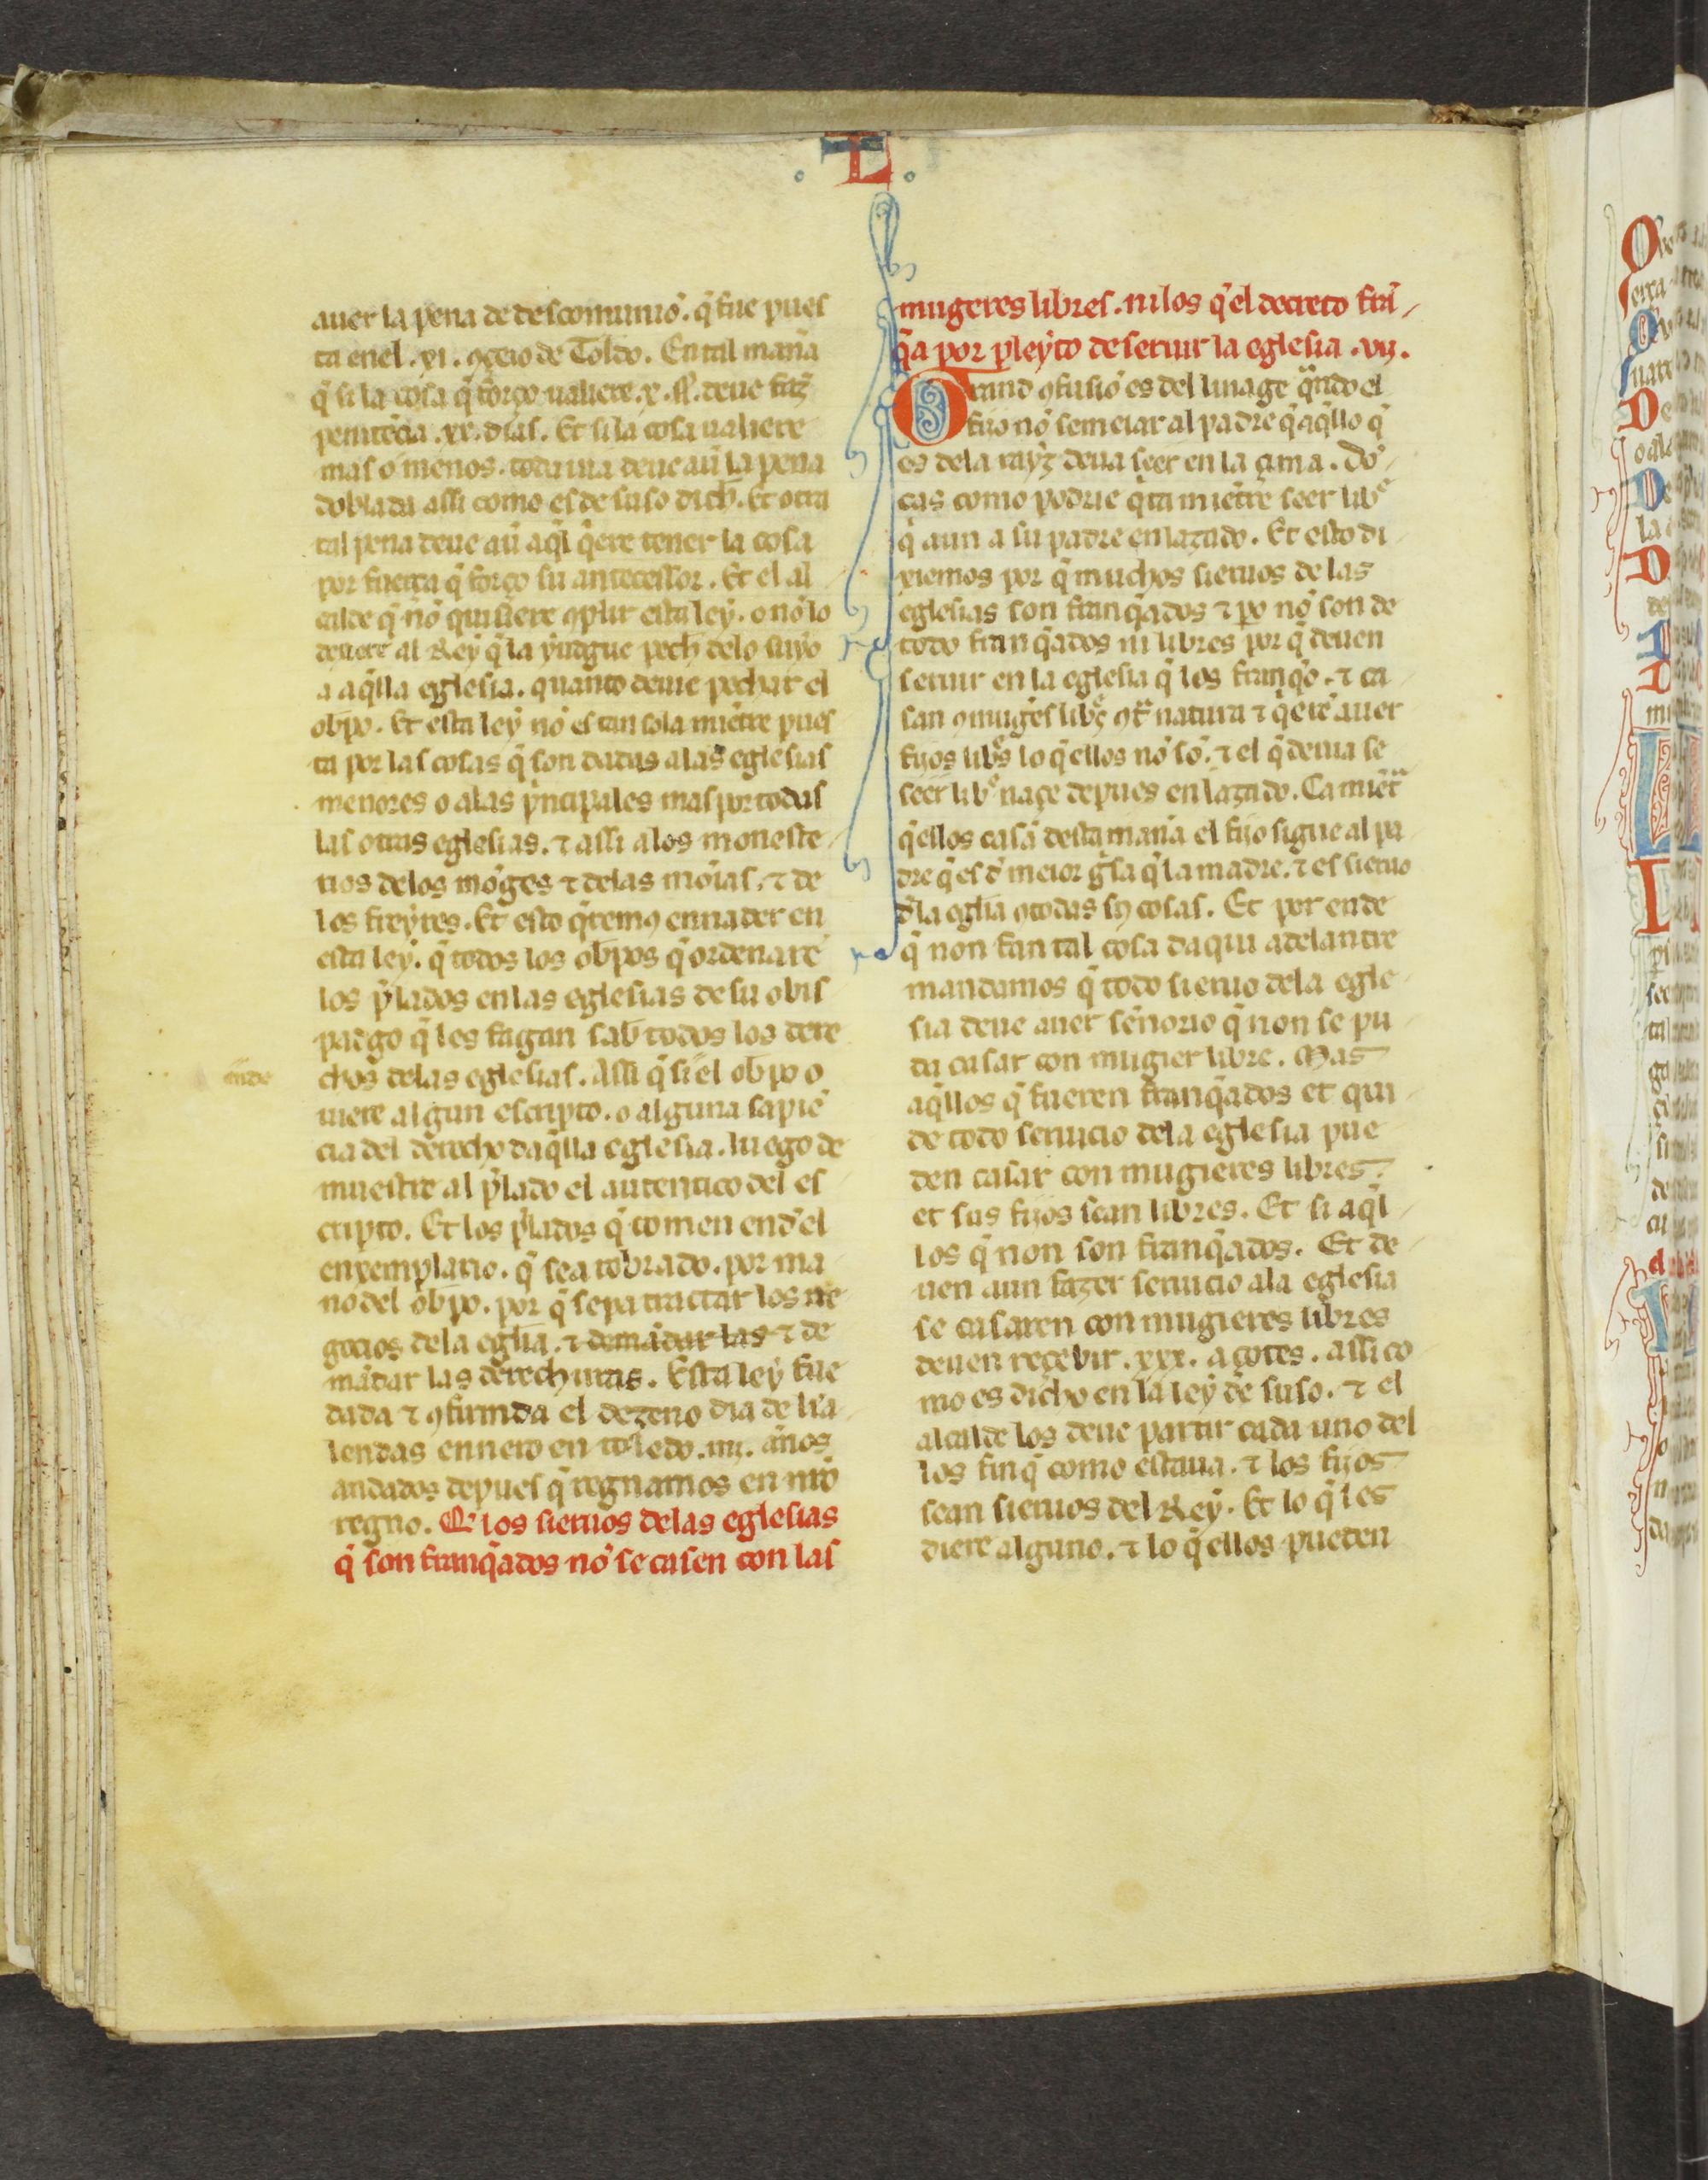 L
auer la pena de descomunio᷃. q̃ fue pues
ta enel .xi. ꝯçeio de Toldo. En tal man̄a
q̃ si la cosa q̃ forço ualiere .x. ss̃. deue faz̃
penite᷃cia .xx. dias. Et si la cosa ualiere
mas o menos. toda uia deue au᷃ la pena
doblada assi como es de suso dich̃. Et otra
tal pena deue au᷃ aq̃l q̃ere tener la cosa
por fuerça q̃ forço su antecessor. Et el al
calde q̃ no᷃ quisiere ꝯplir esta leẏ. o no᷃ lo
al Reẏ q̃ la ẏudgue pech̃ delo suẏo
a aq̃lla eglesia. quanto deue pechar el
obp̃o. Et esta leẏ no᷃ es tan sola mie᷃tre pues
ta por las cosas q̃ son dadas alas eglesias
menores o alas p̃ncipales mas por todas
las otras eglesias. ⁊ assi alos moneste
rios delos mo᷃ges ⁊ delas mo᷃ias. ⁊ de
los freẏres. Et esto q̃remꝯ ennader en
esta leẏ. q̃ todos los obp̃os q̃ ordenare᷃
los p̃lados en las eglesias de su obis
padgo q̃ les fagan sab̃ todos los dere
ende
chos delas eglesias. Assi q̃ si el obp̃o o
uiere algun escripto. o alguna sapie᷃
cia del derecho daq̃lla eglesia. luego de
muestre al p̃lado el autentico del es
cripto. Et los p̃lados q̃ tomen end el
enxemplario. q̃ sea robrado. por ma
no del obp̃o. por q̃ sepa tractar los ne
gocios dela egl̃ia. ⁊ dema᷃dar las ⁊ de
ma᷃dar las derechuras. Esta leẏ fue
dada ⁊ ꝯfirmda el dezeno dia de k̃a
lendas ennero en toledo. iiij. an̄os
andados depues q̃ regnamos en nr̃o
regno. Q̃ los sieruos delas eglesias
q̃ son franq̃ados no᷃ se casen con las
mugeres libres. ni los q̃ el decreto fra᷃
q̃a por pleẏto de seruir la eglesia .vij.
Grand ꝯfusio᷃ es del linage q̃ndo el
fijo no᷃ semeiar al padre q̃ aq̃llo q̃
es dela raẏz deua seer en la çima. Do᷃
cas como podrie q̃ta mie᷃tre seer lib̃e
q̃ aun a su padre enlazado. Et esto di
xiemos por q̃ muchos sieruos de las
eglesias son franq̃ados ⁊ p̃o no᷃ son de
todo franq̃ados ni libres por q̃ deuen
seruir en la eglesia q̃ los franq̃o. ⁊ ca
san ꝯ muget̃s lib̃es ꝯt̃ natura ⁊ q̃ere᷃ auer
fijos lib̃s lo q̃ ellos no᷃ so᷃. ⁊ el q̃ deuia se
seer lib̃e naçe depues enlazado. Ca mie᷃tr̃
q̃ ellos casa᷃ desta man̄a el fijo sigue al pa
dre q̃ es d̃ meior g̃sa q̃ la madre. ⁊ es sieruo
d̃ la egl̃ia ꝯ todas sꝯ cosas. Et por ende
q̃ non fan tal cosa daqui adelantre
mandamos q̃ todo sieruo dela egle
sia deue auer sen̄orio q̃ non se pu
da casar con mugier libre. Mas
aq̃llos q̃ fueren franq̃ados et qui
de todo seruicio dela eglesia pue
den casar con mugieres libres.
et sus fijos sean libres. Et si aq̃l
los q̃ non son franq̃ados. Et de
uen aun fazer seruicio ala eglesia
se casaren con mugieres libres
deuen reçebir .xxx. açotes. assi co
mo es dicho en la leẏ de suso. ⁊ el
alcalde los deue partir cada uno del
los finq̃ como estaua. ⁊ los fijos
sean sieruos del Reẏ. Et lo q̃ les
diere alguno. ⁊ lo q̃ ellos pueden